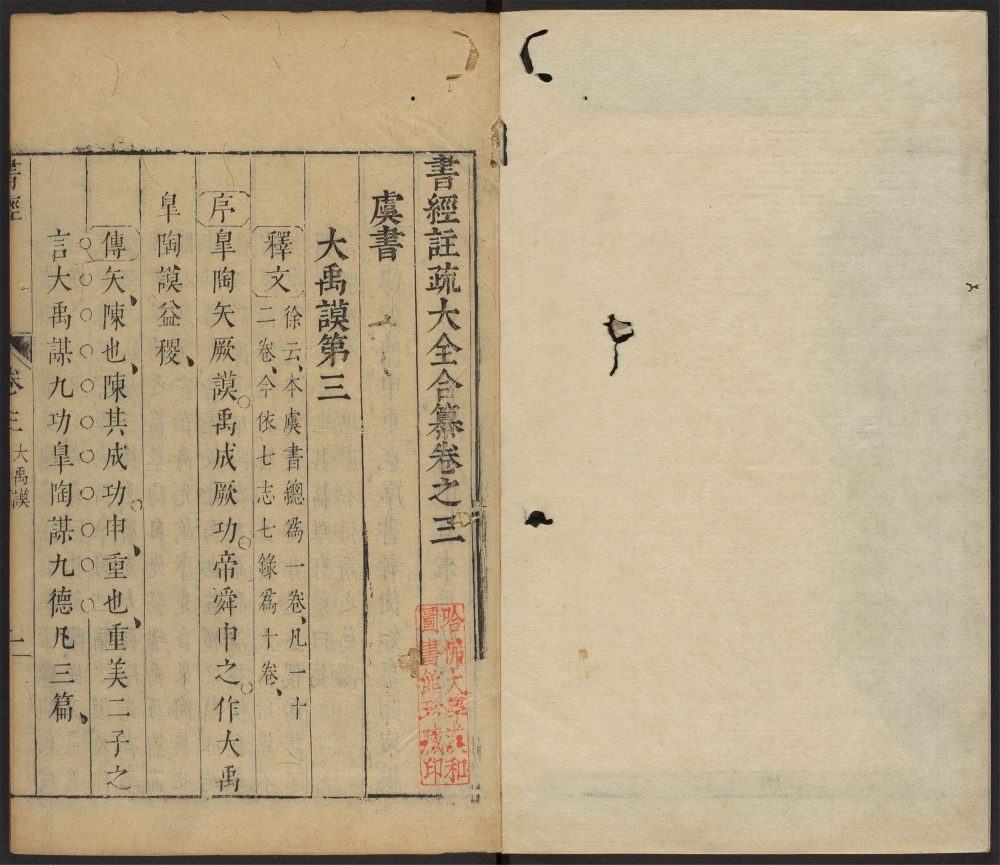 書經註疏大全合纂卷之三
哈佛大學漢和
圖書館珍藏印
虞書
大禹謨第三
釋文
徐云、本虞書總爲一卷、凡一十
二卷、今依七志七錄爲十卷、
序 臯陶矢厥謨。禹成厥功。帝舜申之。作大禹
臯陶謨益稷、
傳 矢、陳也、陳其成功。申、重也、重美二子之
言大禹謀九功臯陶謀九德凡三篇、
書經 卷三 大禹謨 一